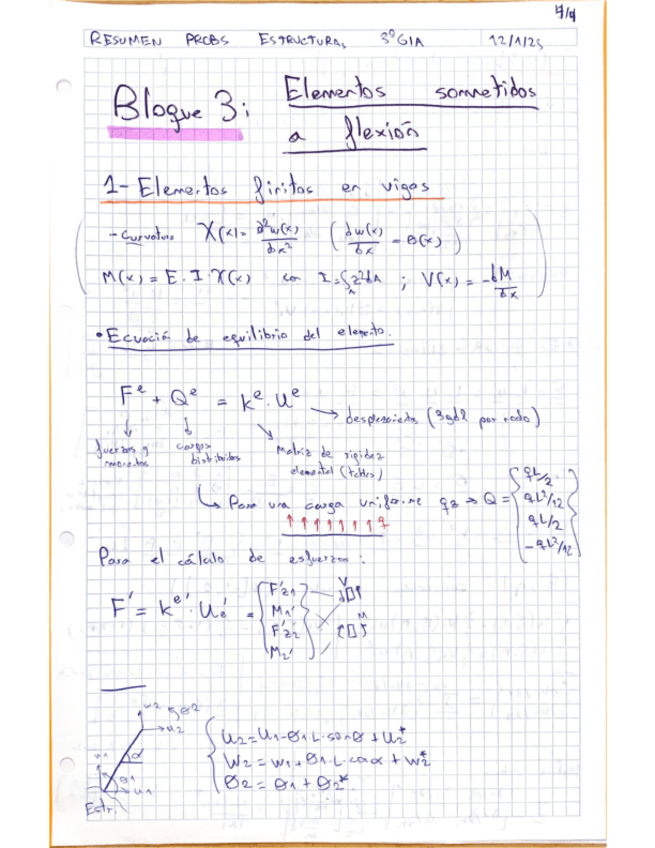 7/4
RESUMEN PROBS ESTRUCTURAS 3º GIA 12/1/25
Bloque 3: Elementos sometidos
a flexión
1- Elementos finitos en vigas
- Curvatura X(x) = d²w(x)/dx² (dw(x)/dx = θ(x))
M(x) = E · I · X(x) con I = ∫_A z²dA ; V(x) = -dM/dx
• Ecuación de equilibrio del elemento.
F^e + Q^e = K^e · U^e → desplazamientos (3gdl por nodo)
fuerzas y momentos
cargas distribuidas
Matriz de rigidez elemental (tablas)
↳ Para una carga uniforme q_z → Q = { qL/2 qL²/12 qL/2 -qL²/12 }
↑↑↑↑↑↑↑ q
Para el cálculo de esfuerzos:
F' = K^e' · U_e' = { F'z1 M1' F'z2 M2' } V M
w2 θ2
u2
w1 α
θ1 u1
Estr.
u2 = u1 - θ1 · L · senα + u2*
w2 = w1 + θ1 · L · cosα + w2*
θ2 = θ1 + θ2*